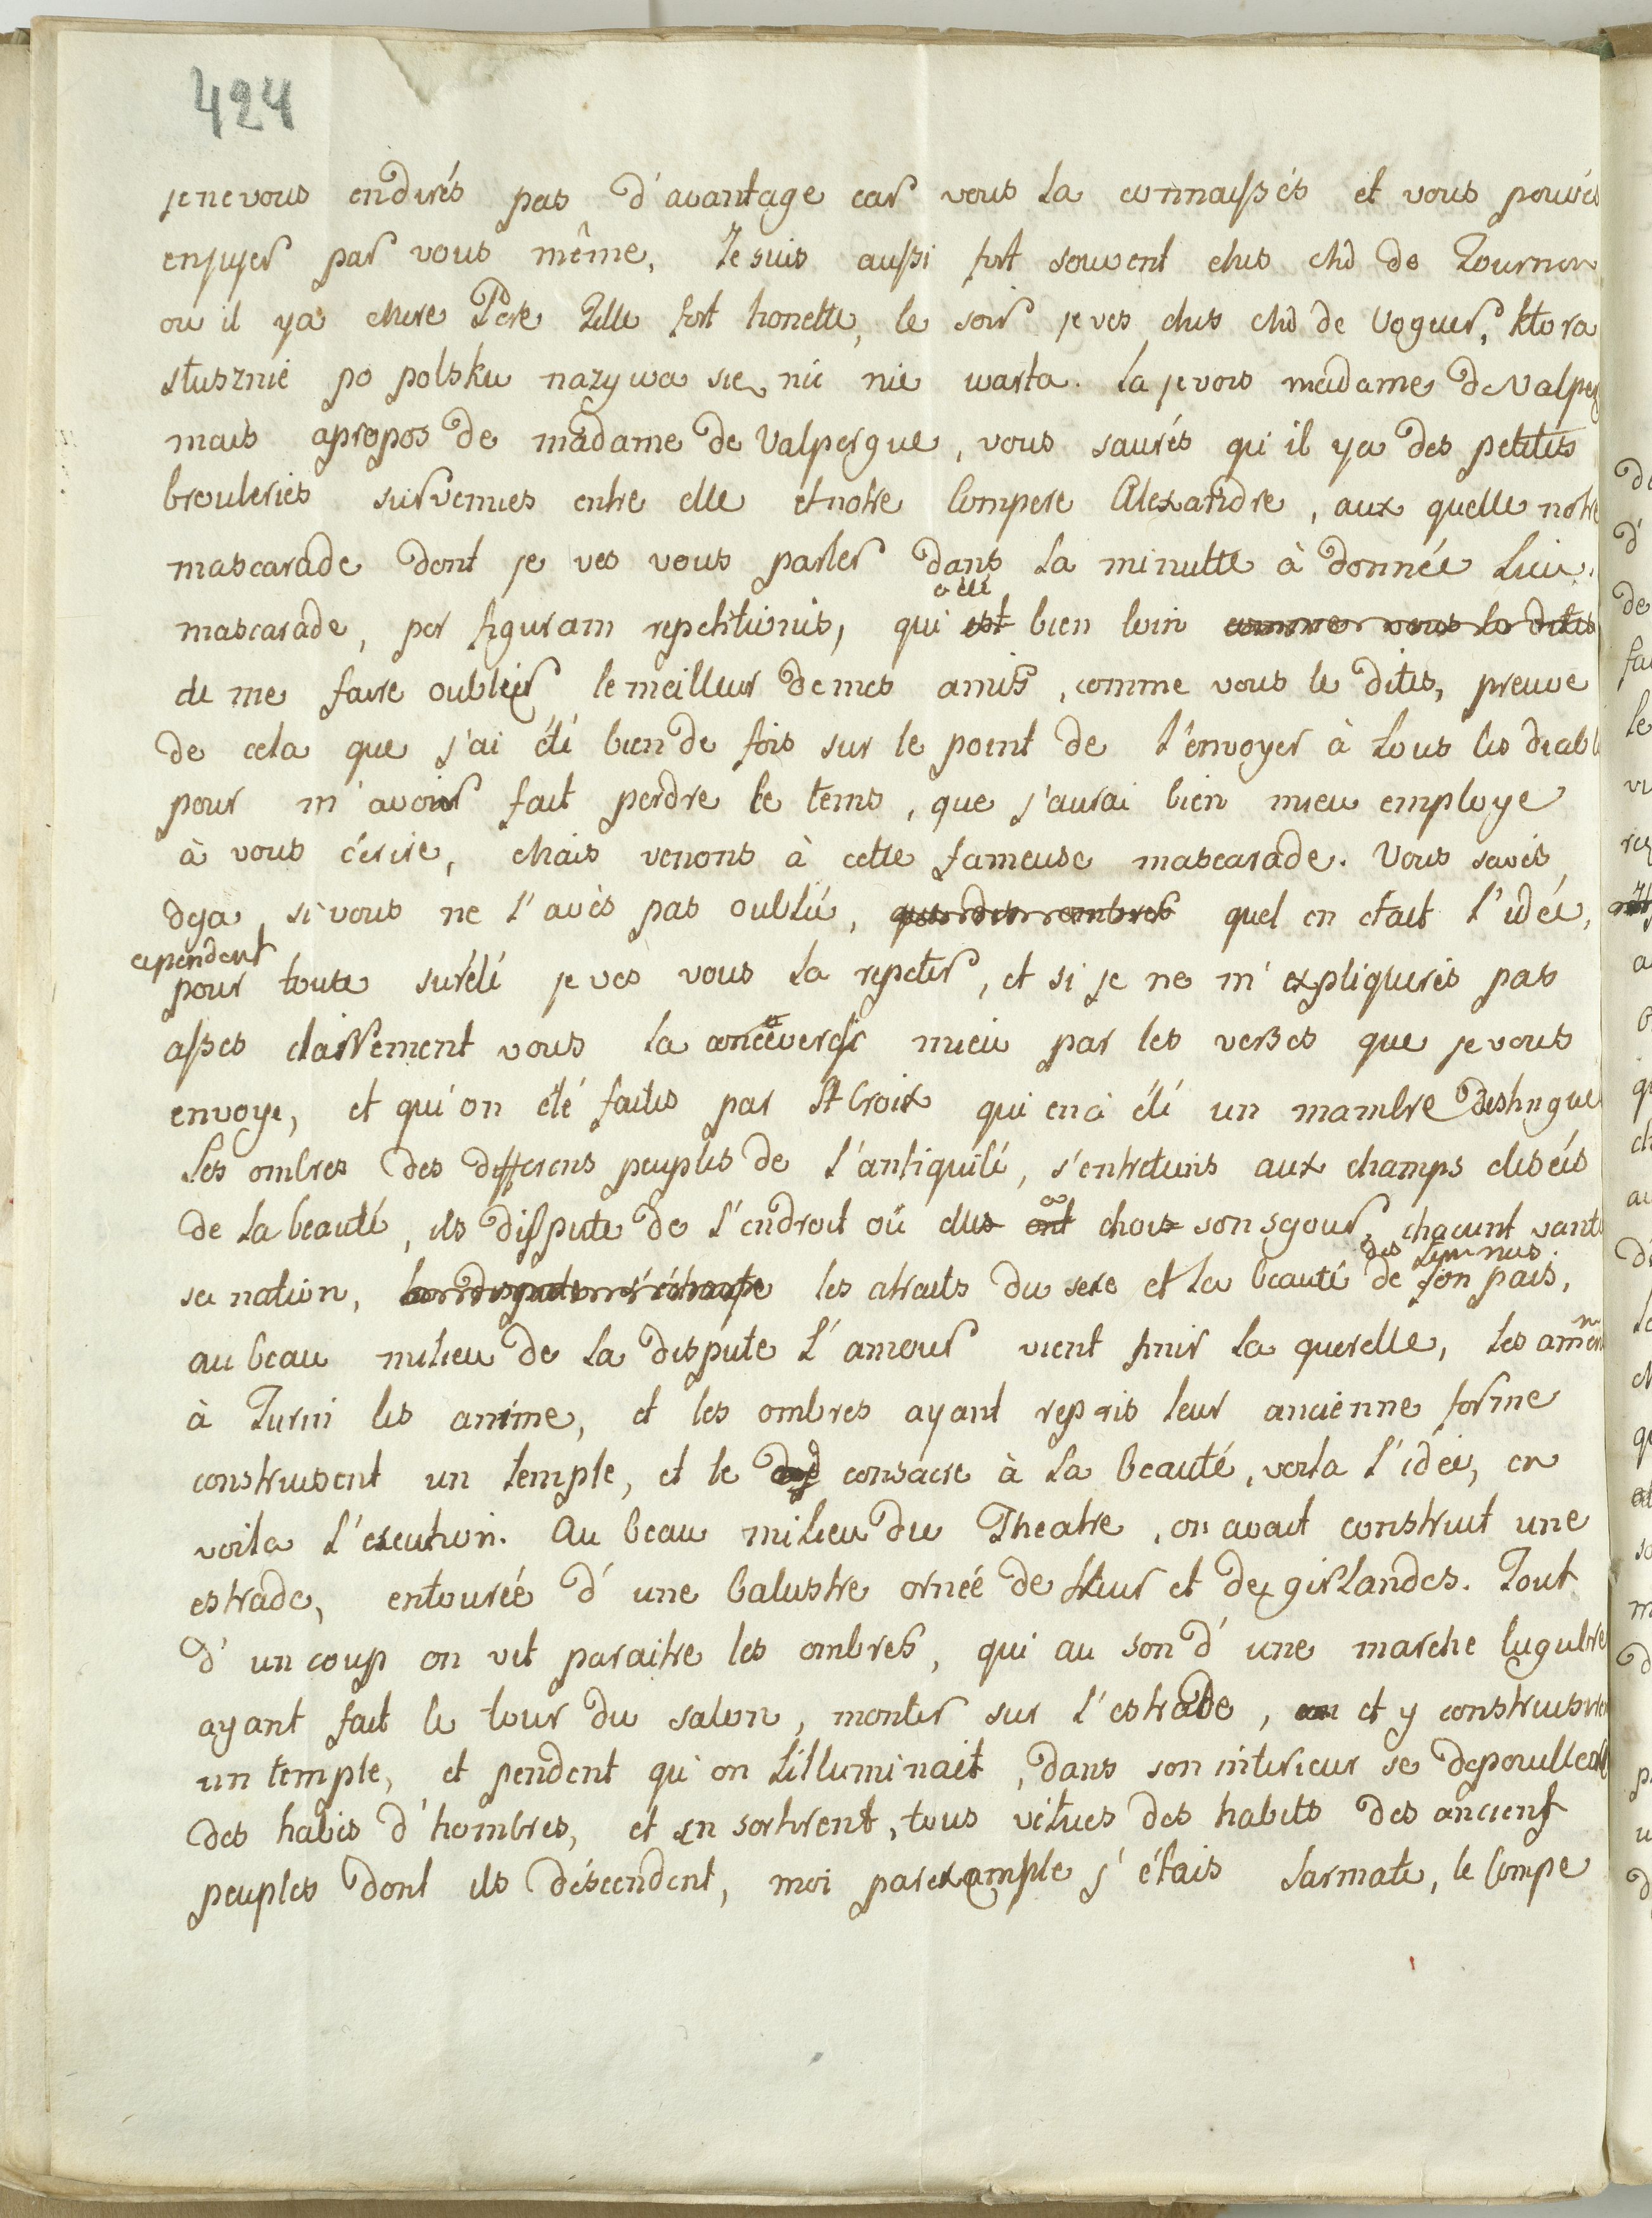 424
je ne vous endirés pas d'avantage car vous la connaissés et vous pouvés
enjujer par vous même, Je suis aussi fort souvent chés Md de Tournon
ou il ya chere Pere Zelle fort honette, le soir je ves chés Md de Voguer, ktora
słusznie po polsku nazywa się nic nie warta. la je vois madame de Valperg
mais apropos de madame de Valpergue, vous saurés qu'il ya des petites
brouleries survenues entre elle et notre Compere Alexandre, aux quelle notre
mascarade dont je ves vous parler dans la minutte à donnée lieu.
mascarade, per figuram repetitionis, qui est a été bien loin comme vous le dites
de me faire oublier le meilleur de mes amis, comme vous le dites, preuve
de cela que j'ai été bien de fois sur le point de l'envoyer à tous les diabl
pour m'avoir fait perdre le tems, que j'aurai bien mieu employe
à vous écrire, Mais venons à cette fameuse mascarade. Vous savés
deja, si vous ne l'avés pas oublié, que des ombres quel en etait l'idée,
cependent pour toute sureté je ves vous la repeter, et si je ne m'expliquerés pas
asses clairement vous la conceverés mieu par les verses que je vous
envoye, et qui on été faites par St Croix qui en a été un mambre destingue
Les ombres des differens peuples de l'antiquité, s'entretiens aux champs elisées
de la beauté, ils dispute de l'endroit où elle ont a choisi son sejour, chacunt vante
sa nation, la dispute s'échaufe les atraits du sexe et la beauté de des femmes son pais,
au beau milieu de la dispute l'amour vient finir la querelle, les amen
à Turin les anime, et les ombres ayant repris leur ancienne forme
construisent un temple, et le consacre à la beauté, voila l'idée, en
voila l'exécution. Au beau milieu du Theatre, on avait construit une
estrade, entourée d'une balustre ornée de fleur et de girlandes. Tout
d'un coup on vit paraitre les ombres, qui au son d'une marche lugubre
ayant fait le tour du salon, monter sur l'estrade, et y construisire
un temple, et pendent qu'on l'illuminait, dans son interieur se depouillerent
des habis d'hombres, et en sortirent, tous vétues des habits des anciens
peuples dont ils déscendent, moi parexample j'étais sarmate, le Compe